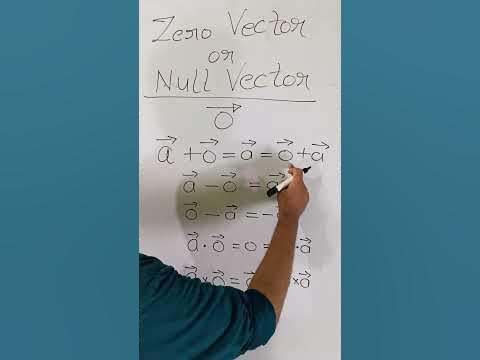 Zero Vector
or
Null Vector
→0
→a + →0 = →a = →0 + →a
→a - →0 = →a
→0 - →a = -
→a · →0 = 0 = · →a
→a × →0 = × →a